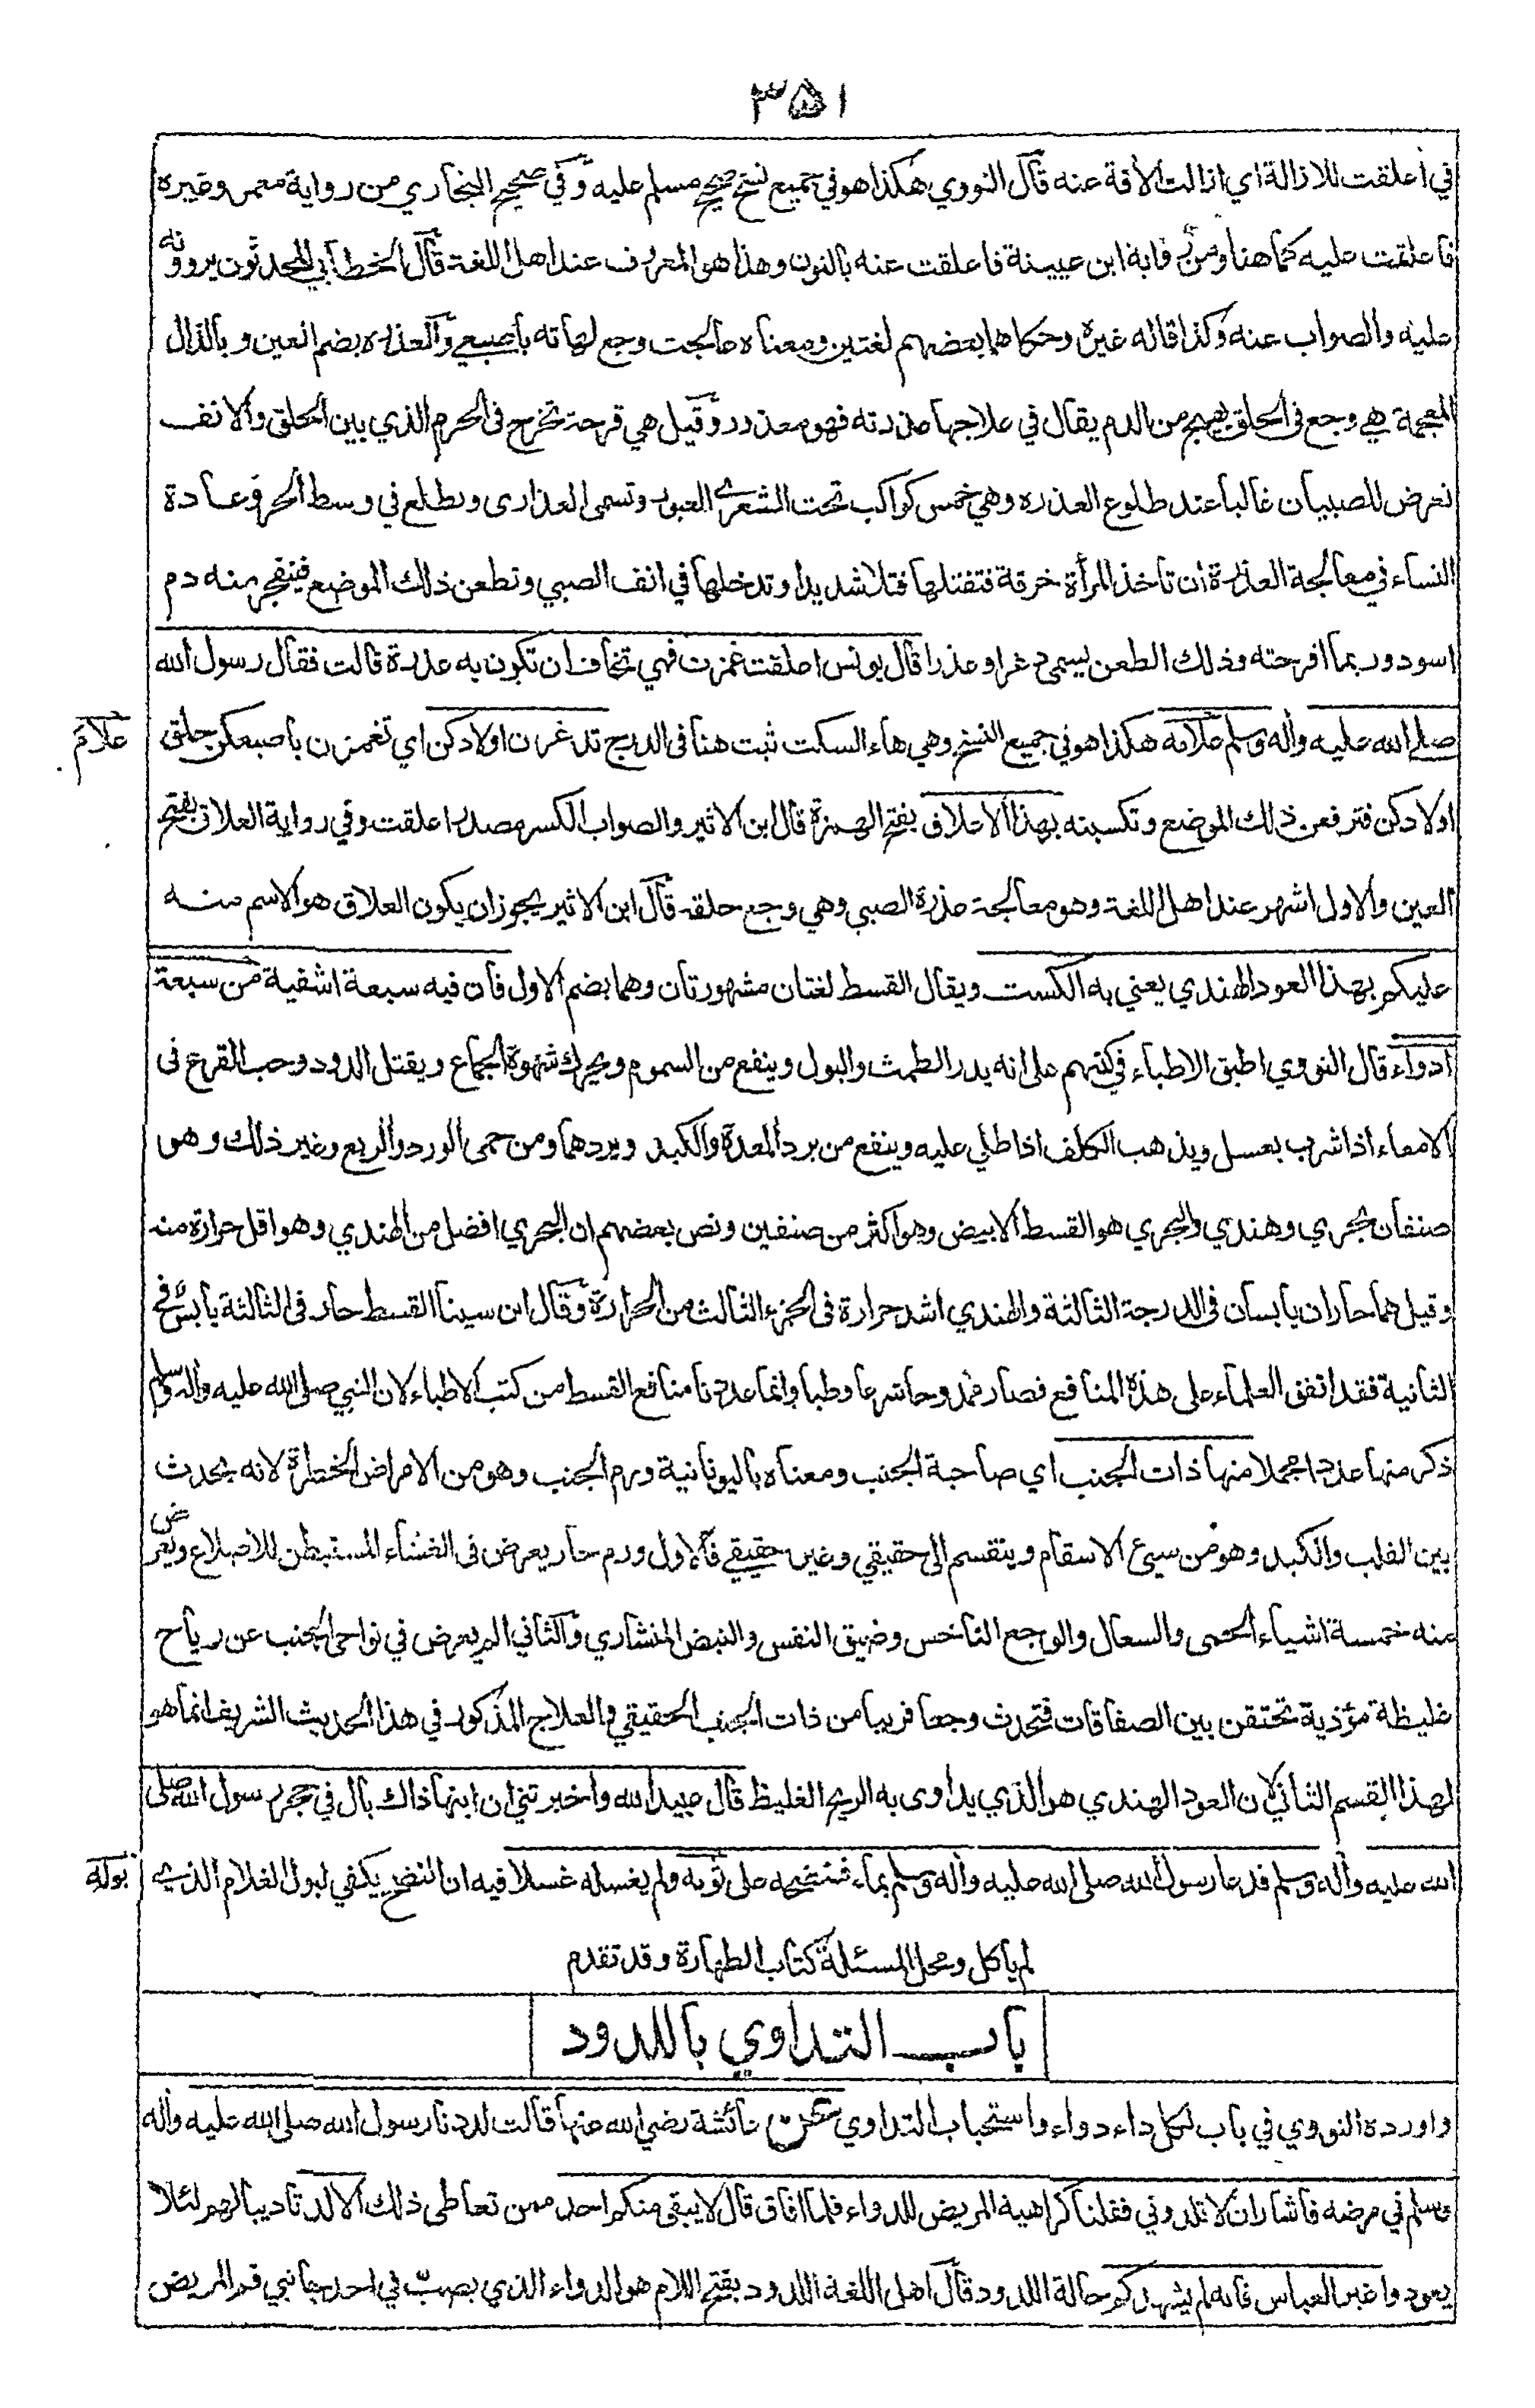 ٣٥١
في اعلقت للازالة اي ازالت الأفة عنه قال النووي هكذا هو في جميع نسخ صحيح مسلم عليه وفي صحيح البخاري من رواية معمر وغيره
فاعلقت عليه كما هنا ومن رواية ابن عيينة فاعلقت عنه بالنون وهذا هو المعروف عند اهل اللغة قال الخطابي المحدثون يروونه
عليه والصواب عنه وكذا قاله غيره وحكاهما بعضهم لغتين ومعناه عالجت وجع لهاته باصبعي والعذره بضم العين وبالذال
المعجمة هي وجع فى الحلق يهيج من الدم يقال في علاجها عذرته فهو معذور وقيل هي قرحة تخرج فى الخرم الذي بين الحلق والانف
تعرض للصبيان غالبا عند طلوع العذره وهي خمس كواكب تحت الشعرى العبور وتسمى العذارى وتطلع في وسط الحر وعادة
النساء في معالجة العذرة ان تاخذ المرأة خرقة فتفتلها فتلا شديدا وتدخلها في انف الصبي وتطعن ذلك الموضع فينفجر منه دم
اسود وربما اقرحته وذلك الطعن يسمى دغرا وعذرا قال يونس اعلقت غمزت فهي تخاف ان تكون به عذرة قالت فقال رسول الله
صلى الله عليه وأله وسلم علامه هكذا هو في جميع النسخ وهي هاء السكت ثبت هنا فى الدرج تدغرن اولادكن اي تغمزن باصبعكن حلق
علامَ
اولادكن فترفعن ذلك الموضع وتكبسنه بهذا الاعلاق بفتح الهمزة قال ابن الاثير والصواب الكسر مصدر اعلقت وفي رواية العلاق بفتح
العين والاول اشهر عند اهل اللغة وهو معالجة عذرة الصبي وهي وجع حلقه قال ابن الاثير يجوز ان يكون العلاق هو الاسم منه
عليكم بهذا العود الهندي يعني به الكست ويقال القسط لغتان مشهورتان وهما بضم الاول فان فيه سبعة اشفية من سبعة
ادواء قال النووي اطبق الاطباء في كتبهم على انه يدر الطمث والبول وينفع من السموم ويحرك شهوة الجماع ويقتل الدود وحب القرع فى
الامعاء اذا شرب بعسل ويذهب الكلف اذا طلي عليه وينفع من برد المعدة والكبد ويردهما ومن حمى الورد والربع وغير ذلك وهو
صنفان بحري وهندي والبحري هو القسط الابيض وهو اكثر من صنفين ونص بعضهم ان البحري افضل من الهندي وهو اقل حرارة منه
وقيل هما حاران يابسان فى الدرجة الثالثة والهندي اشد حرارة فى الجزء الثالث من الحرارة وقال ابن سينا القسط حار فى الثالثة يابس في
الثانية فقد اتفق العلماء على هذه المنافع فصار ممدوحا شرعا وطبا وانما عددنا منافع القسط من كتب الاطباء لان النبي صلى الله عليه واله وسلم
ذكر منها عددا مجملا منها ذات الجنب اي صاحبة الجنب ومعناه باليونانية ورم الجنب وهو من الامراض الخطرة لانه يحدث
بين القلب والكبد وهو من سيئ الاسقام وينقسم الى حقيقي وغير حقيقي فالاول ورم حار يعرض فى الغشاء المستبطن للاضلاع ويعرض
عنه خمسة اشياء الحمى والسعال والوجع الناخس وضيق النفس والنبض المنشاري والثاني الم يعرض في نواحى الجنب عن رياح
غليظة مؤذية تحتقن بين الصفاقات فتحدث وجعا قريبا من ذات الجنب الحقيقي والعلاج المذكور في هذا الحديث الشريف انما هو
لهذا القسم الثاني لان العود الهندي هو الذي يداوى به الريح الغليظ قال عبيد الله واخبرتني ان ابنها ذاك بال في حجر رسول الله صلى
الله عليه وأله وسلم فدعا رسول الله صلى الله عليه وأله وسلم بماء فنضحه على ثوبه ولم يغسله غسلا فيه ان النضح يكفي لبول الغلام الذي
بوله
لم ياكل ومحل المسئلة كتاب الطهارة وقد تقدم
باب التداوي باللدود
واورده النووي في باب لكل داء دواء واستحباب التداوي عن عائشة رضي الله عنها قالت لددنا رسول الله صلى الله عليه وأله
وسلم في مرضه فاشار ان لا تلدوني فقلنا كراهية المريض للدواء فلما افاق قال لا يبقى منكم احد ممن تعاطى ذلك الا لد تاديبا لهم لئلا
يعودوا غير العباس فانه لم يشهدكم حالة اللدود قال اهل اللغة اللدود بفتح اللام هو الدواء الذي يصب في احد جانبي فم المريض